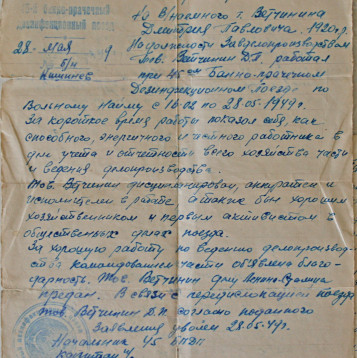 банно-прачечный
дезинфекционный поезд
28 мая
№ б/н
Кишинев
На В/наемного т. Ветчинина
Дмитрия Павловича 1920г.р.
По должности Завделопроизводством
Тов. Ветчинин Д.П. работал
при 45ом Банно-прачечном
Дезинфекционном Поезде по
Вольному Найму с 16.02 по 28.05.1944г.
За короткое время работы показал себя, как
способного, энергичного и честного работника в
деле учета и отчетности всего хозяйства части
и ведения делопроизводства.
Тов. Ветчинин дисциплинирован, аккуратен и
исполнителен в работе а также был хорошим
хозяйственником и первым активистом в
общественных делах поезда.
За хорошую работу по ведению делопроизвод-
ства командованием части объявлена благо-
дарность. Тов. Ветчинин делу Ленина-Сталина
предан. В связи с передислокацией поезда
тов. Ветчинин Д.П. согласно поданного
Заявления уволен 28.05.44г.
Начальник 45 БПДП
капитан